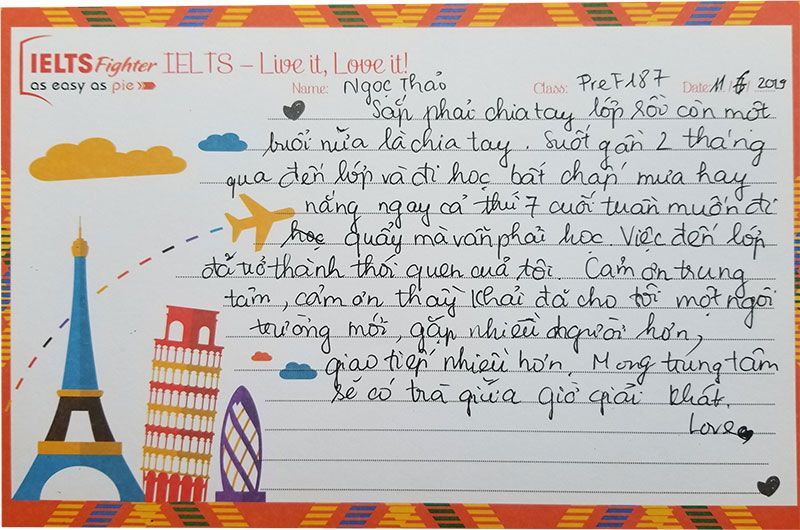 IELTS Fighter IELTS – Live it, Love it!
as easy as pie
Name: Ngọc Thảo Class: PreF187 Date: 11 / / 2019
Sắp phải chia tay lớp rồi còn một
buổi nữa là chia tay. Suốt gần 2 tháng
qua đến lớp và đi học bất chấp mưa hay
nắng ngay cả thứ 7 cuối tuần muốn đi
học quẩy mà vẫn phải học. Việc đến lớp
đã trở thành thói quen của tôi. Cảm ơn trung
tâm, cảm ơn thầy Khải đã cho tôi một ngôi
trường mới, gặp nhiều người hơn,
giao tiếp nhiều hơn. Mong trung tâm
sẽ có trà giữa giờ giải khát.
Love